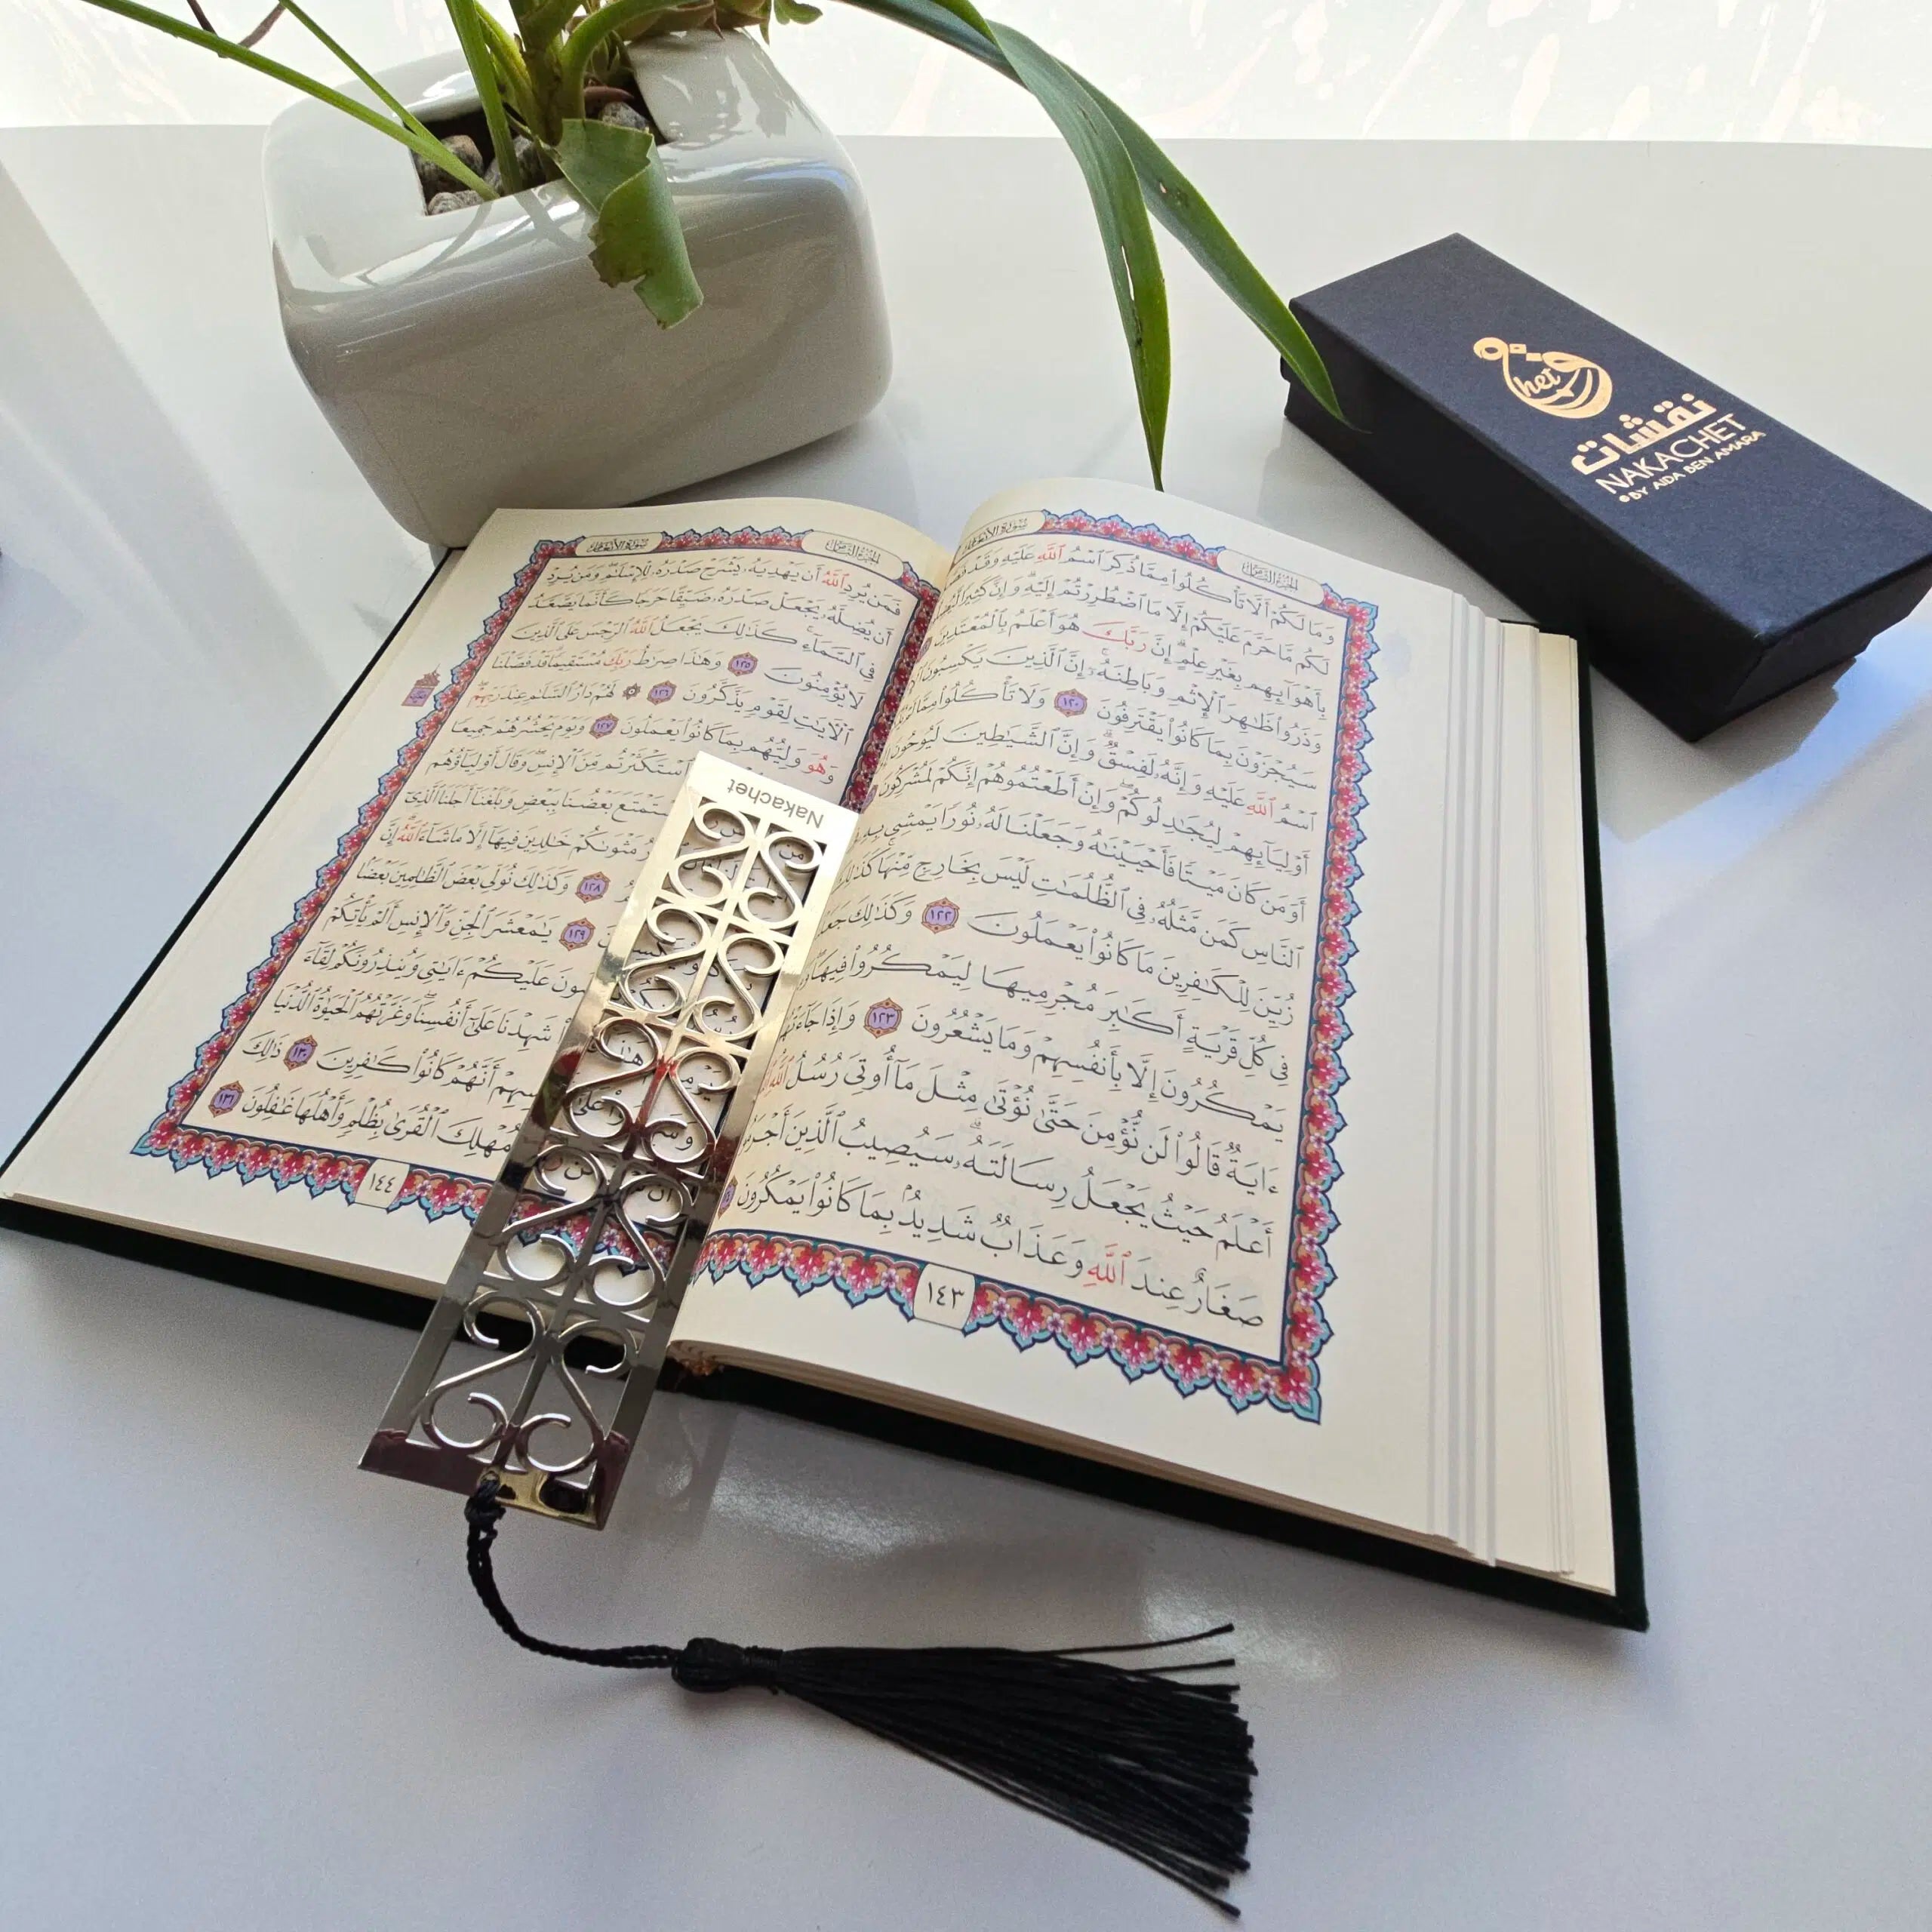 سُورَةُ الأَنْعَامِ
الجُزْءُ الثَّامِنُ
وَمَا لَكُمْ أَلَّا تَأْكُلُوا۟ مِمَّا ذُكِرَ ٱسْمُ ٱللَّهِ عَلَيْهِ وَقَدْ
لَكُم مَّا حَرَّمَ عَلَيْكُمْ إِلَّا مَا ٱضْطُرِرْتُمْ إِلَيْهِ وَإِنَّ كَثِيرًا
بِأَهْوَآئِهِم بِغَيْرِ عِلْمٍ إِنَّ رَبَّكَ هُوَ أَعْلَمُ بِٱلْمُعْتَدِينَ
وَذَرُوا۟ ظَـٰهِرَ ٱلْإِثْمِ وَبَاطِنَهُۥٓ إِنَّ ٱلَّذِينَ يَكْسِبُونَ
سَيُجْزَوْنَ بِمَا كَانُوا۟ يَقْتَرِفُونَ ١٢٠ وَلَا تَأْكُلُوا۟ مِمَّا
ٱسْمُ ٱللَّهِ عَلَيْهِ وَإِنَّهُۥ لَفِسْقٌ وَإِنَّ ٱلشَّيَـٰطِينَ لَيُوحُونَ
أَوْلِيَآئِهِمْ لِيُجَـٰدِلُوكُمْ وَإِنْ أَطَعْتُمُوهُمْ إِنَّكُمْ لَمُشْرِكُونَ
أَوَمَن كَانَ مَيْتًا فَأَحْيَيْنَـٰهُ وَجَعَلْنَا لَهُۥ نُورًا يَمْشِى بِهِۦ
ٱلنَّاسِ كَمَن مَّثَلُهُۥ فِى ٱلظُّلُمَـٰتِ لَيْسَ بِخَارِجٍ مِّنْهَا كَذَٰلِكَ
زُيِّنَ لِلْكَـٰفِرِينَ مَا كَانُوا۟ يَعْمَلُونَ ١٢٢ وَكَذَٰلِكَ
فِى كُلِّ قَرْيَةٍ أَكَـٰبِرَ مُجْرِمِيهَا لِيَمْكُرُوا۟ فِيهَا
يَمْكُرُونَ إِلَّا بِأَنفُسِهِمْ وَمَا يَشْعُرُونَ ١٢٣ وَإِذَا
ءَايَةٌ قَالُوا۟ لَن نُّؤْمِنَ حَتَّىٰ نُؤْتَىٰ مِثْلَ مَآ أُوتِىَ رُسُلُ ٱللَّهِ
أَعْلَمُ حَيْثُ يَجْعَلُ رِسَالَتَهُۥ سَيُصِيبُ ٱلَّذِينَ
صَغَارٌ عِندَ ٱللَّهِ وَعَذَابٌ شَدِيدٌۢ بِمَا كَانُوا۟ يَمْكُرُونَ
١٤٣
سُورَةُ الأَنْعَامِ
الجُزْءُ الثَّامِنُ
فَمَن يُرِدِ ٱللَّهُ أَن يَهْدِيَهُۥ يَشْرَحْ صَدْرَهُۥ لِلْإِسْلَـٰمِ وَمَن يُرِدْ
أَن يُضِلَّهُۥ يَجْعَلْ صَدْرَهُۥ ضَيِّقًا حَرَجًا كَأَنَّمَا يَصَّعَّدُ
فِى ٱلسَّمَآءِ كَذَٰلِكَ يَجْعَلُ ٱللَّهُ ٱلرِّجْسَ عَلَى ٱلَّذِينَ
لَا يُؤْمِنُونَ ١٢٥ وَهَـٰذَا صِرَٰطُ رَبِّكَ مُسْتَقِيمًا قَدْ فَصَّلْنَا
ٱلْـَٔايَـٰتِ لِقَوْمٍ يَذَّكَّرُونَ ١٢٦ لَهُمْ دَارُ ٱلسَّلَـٰمِ عِندَ رَبِّهِمْ
وَهُوَ وَلِيُّهُم بِمَا كَانُوا۟ يَعْمَلُونَ ١٢٧ وَيَوْمَ يَحْشُرُهُمْ جَمِيعًا
ٱسْتَكْثَرْتُم مِّنَ ٱلْإِنسِ وَقَالَ أَوْلِيَآؤُهُم
مِّنَ ٱسْتَمْتَعَ بَعْضُنَا بِبَعْضٍ وَبَلَغْنَآ أَجَلَنَا ٱلَّذِىٓ
مَثْوَىٰكُمْ خَـٰلِدِينَ فِيهَآ إِلَّا مَا شَآءَ ٱللَّهُ إِنَّ
١٢٨ وَكَذَٰلِكَ نُوَلِّى بَعْضَ ٱلظَّـٰلِمِينَ بَعْضًۢا
١٢٩ يَـٰمَعْشَرَ ٱلْجِنِّ وَٱلْإِنسِ أَلَمْ يَأْتِكُمْ
عَلَيْكُمْ ءَايَـٰتِى وَيُنذِرُونَكُمْ لِقَآءَ
شَهِدْنَا عَلَىٰٓ أَنفُسِنَا وَغَرَّتْهُمُ ٱلْحَيَوٰةُ ٱلدُّنْيَا
أَنَّهُمْ كَانُوا۟ كَـٰفِرِينَ ١٣٠ ذَٰلِكَ
مُهْلِكَ ٱلْقُرَىٰ بِظُلْمٍ وَأَهْلُهَا غَـٰفِلُونَ ١٣١
١٤٤
Nakachet
het
نقشات
NAKACHET
©BY AIDA BEN AMARA